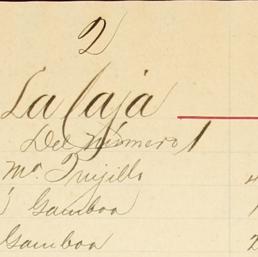 2
La Caja
Del Número 1
Ma. Trujillo
Gamboa
Gamboa 2